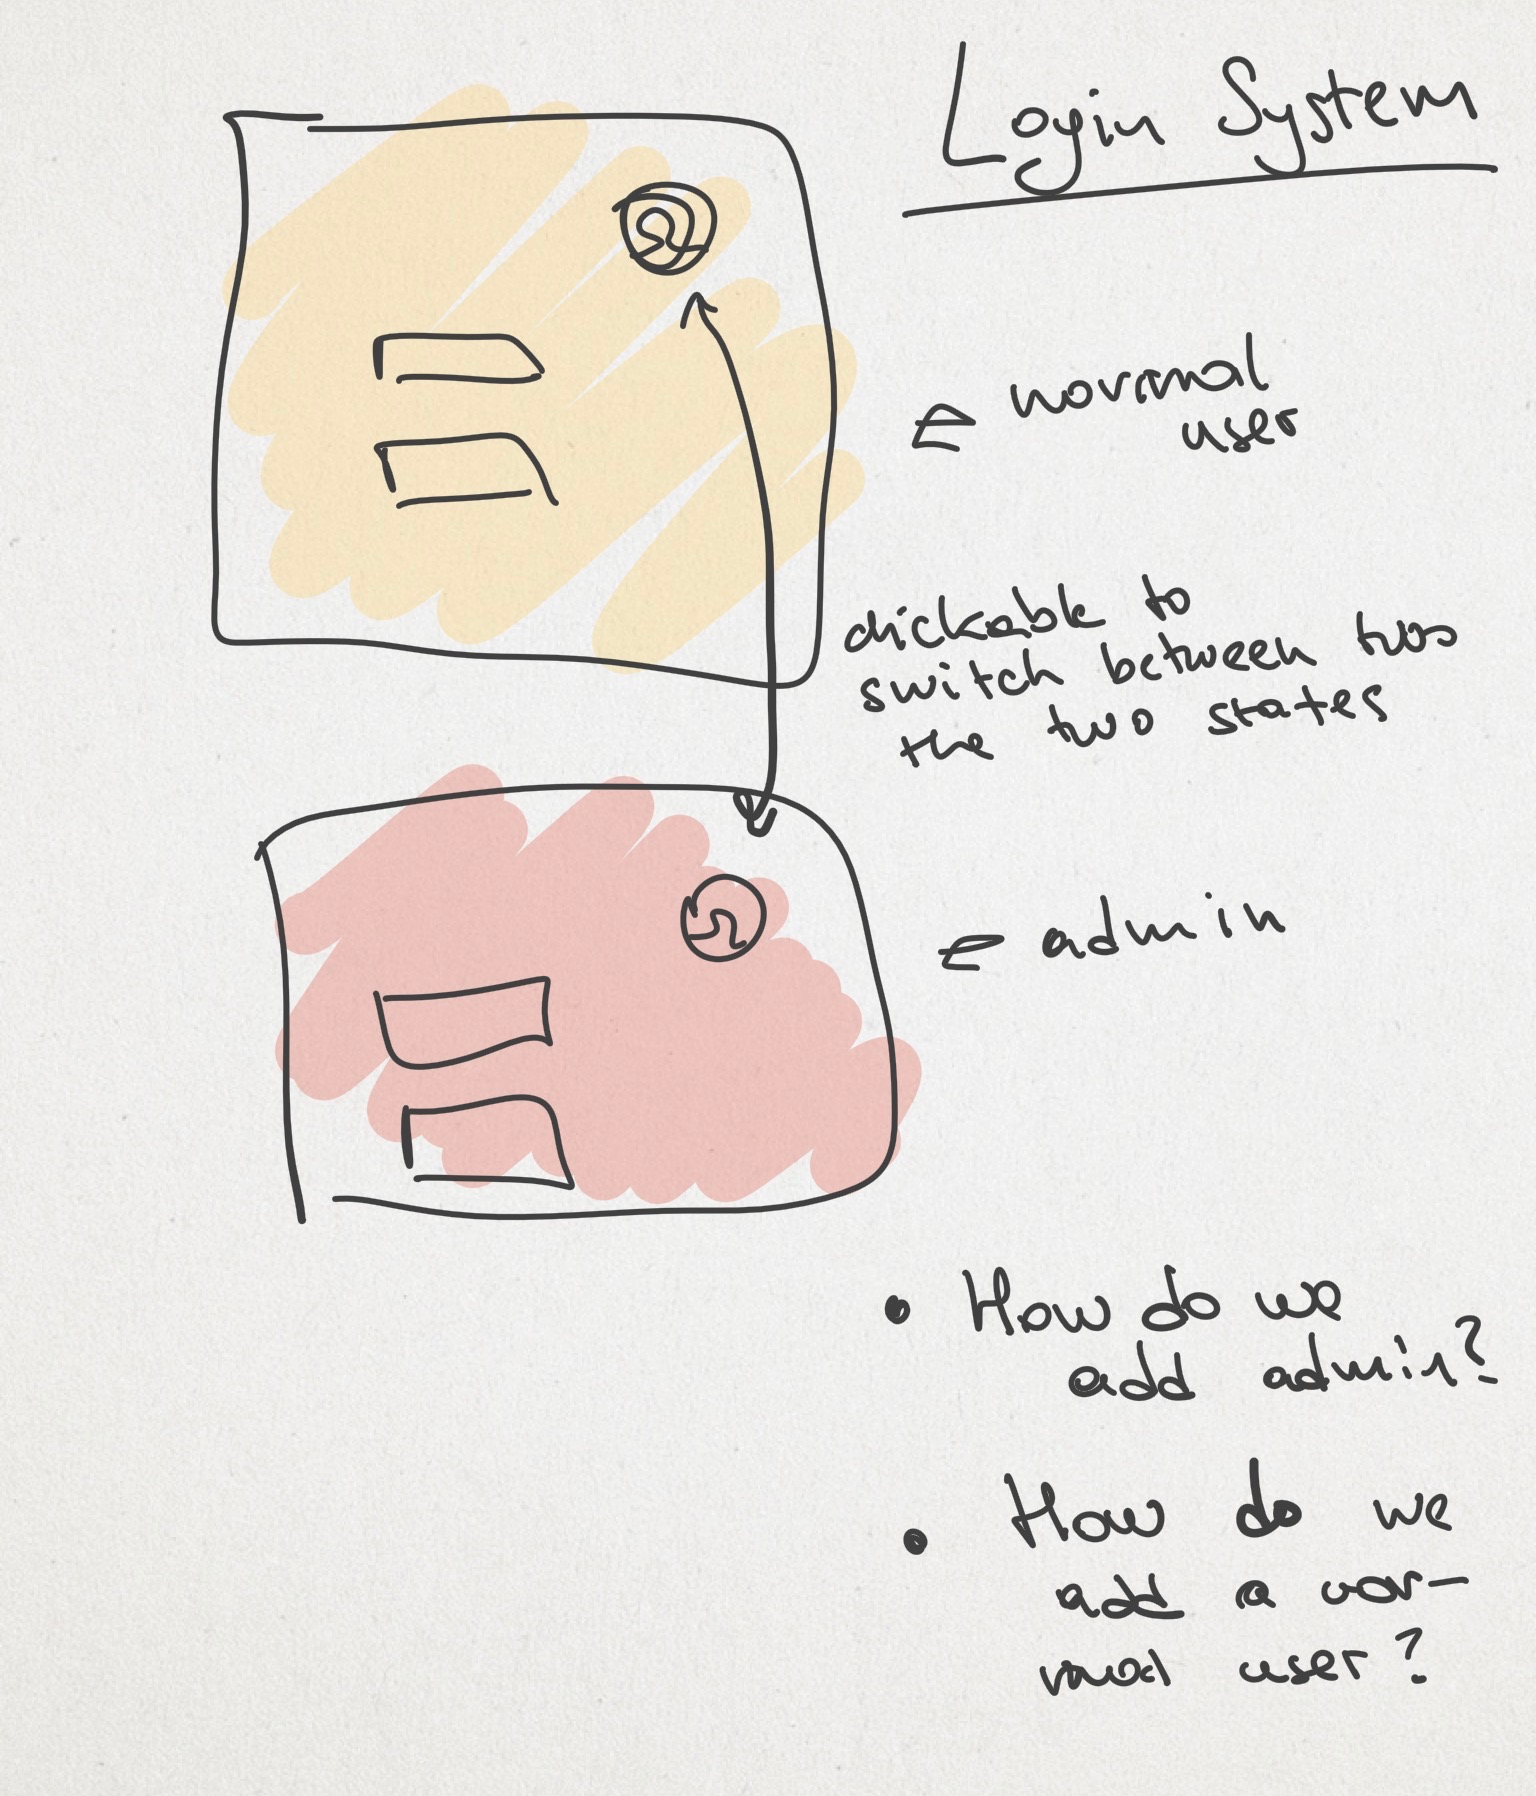 Login System
normal
user
clickable to
switch between two
the two states
admin
• How do we
add admin?
• How do we
add a nor-
mal user?